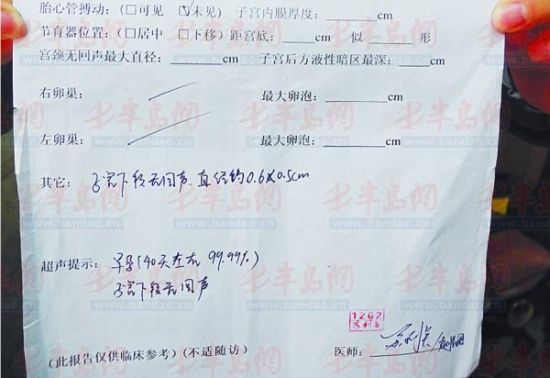 胎心管搏动：（□可见 ☑未见） 子宫内膜厚度：______cm
节育器位置：（□居中 □下移）距宫底：____cm 似____形
宫颈无回声最大直径：______cm 子宫后方液性暗区最深：______cm
右卵巢： 最大卵泡：______cm
左卵巢： 最大卵泡：______cm
其它：子宫下段无回声，直径约0.6X0.5cm
超声提示：早孕(40天左右 99.99%)
子宫下段无回声
1262
医师：
（此报告仅供临床参考）（不适随访）
半岛網
www.bandao.cn